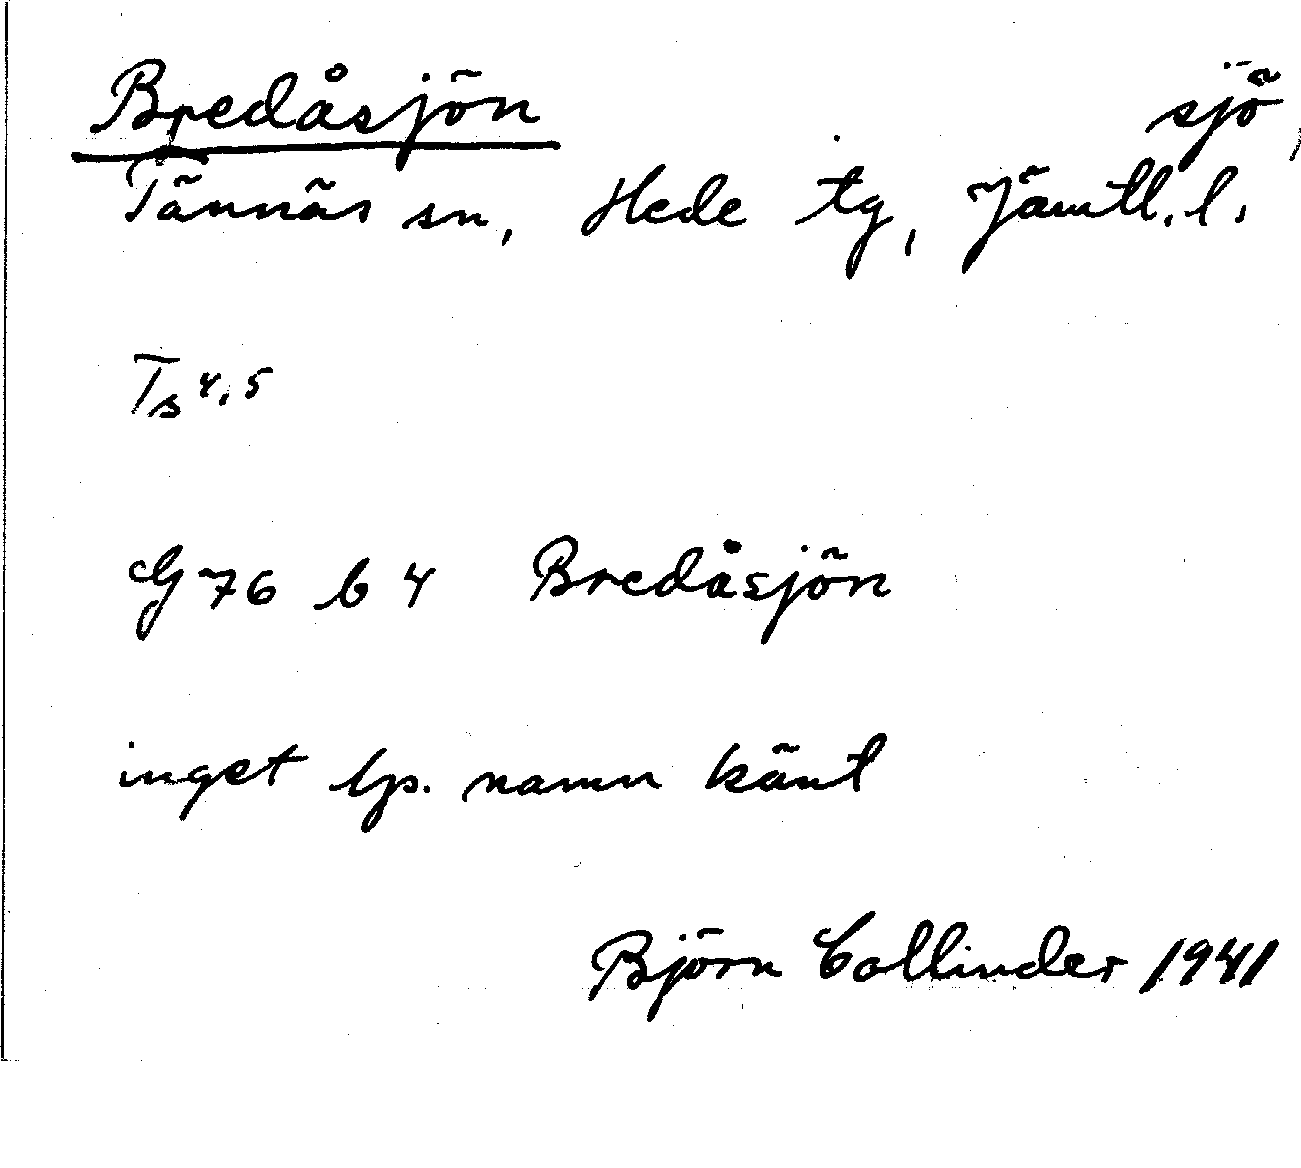 Bredåsjön sjö,
Tännäs sn, Hede tg, Jämtl. l.
Ts 4, 5
G 76 b 4 Bredåsjön
inget lp. namn känt
Björn Collinder 1941